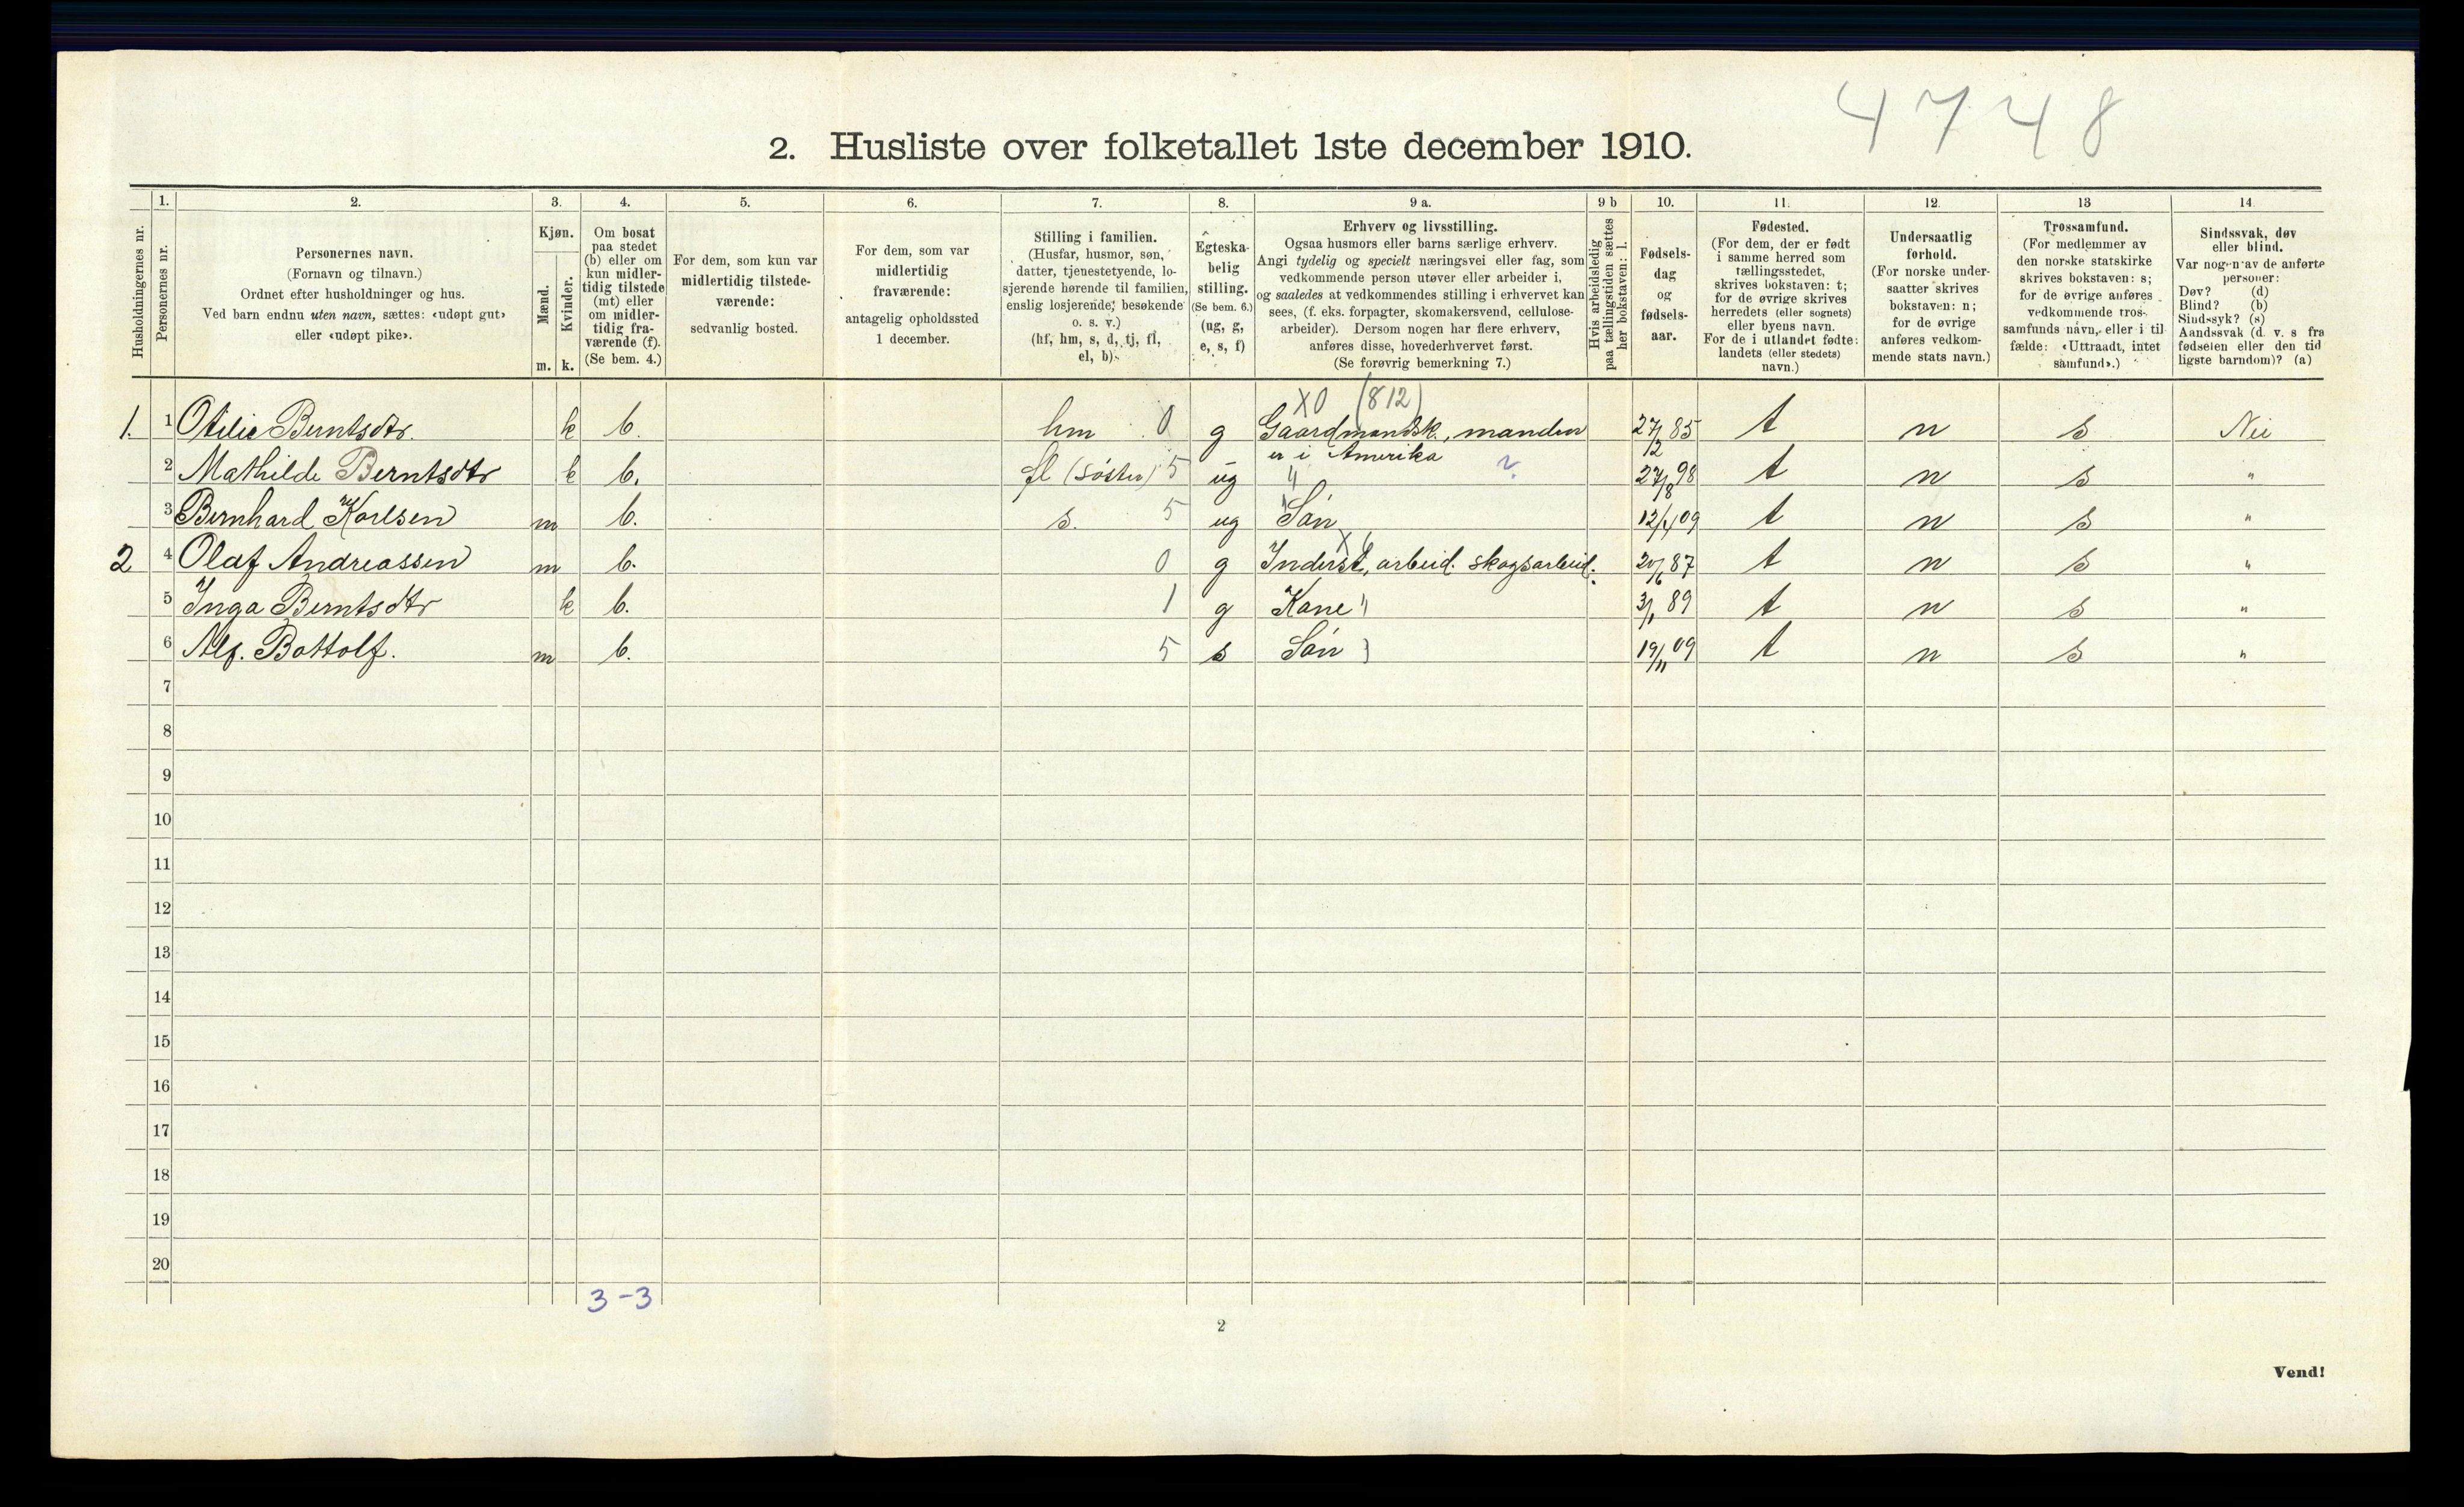 4748
2. Husliste over folketallet 1ste december 1910.
Husholdningernes nr.
1.
Personernes nr.
2.
Personernes navn.
(Fornavn og tilnavn.)
Ordnet efter husholdninger og hus.
Ved barn endnu uten navn, sættes: «udøpt gut»
eller «udøpt pike».
3.
Kjøn.
Mænd.
Kvinder.
m. k.
4.
Om bosat
paa stedet
(b) eller om
kun midler-
tidig tilstede
(mt) eller
om midler-
tidig fra-
værende (f).
(Se bem. 4.)
5.
For dem, som kun var
midlertidig tilstede-
værende:
sedvanlig bosted.
6.
For dem, som var
midlertidig
fraværende:
antagelig opholdssted
1 december.
7.
Stilling i familien.
(Husfar, husmor, søn,
datter, tjenestetyende, lo-
sjerende hørende til familien,
enslig losjerende, besøkende
o. s. v.)
(hf, hm, s, d, tj, fl,
el, b).
8.
Egteska-
belig
stilling.
(Se bem. 6.)
(ug, g,
e, s, f)
9 a.
Erhverv og livsstilling.
Ogsaa husmors eller barns særlige erhverv.
Angi tydelig og specielt næringsvei eller fag, som
vedkommende person utøver eller arbeider i,
og saaledes at vedkommendes stilling i erhvervet kan
sees, (f. eks. forpagter, skomakersvend, cellulose-
arbeider). Dersom nogen har flere erhverv,
anføres disse, hovederhvervet først.
(Se forøvrig bemerkning 7.)
9 b
Hvis arbeidsledig
paa tællingstiden sættes
her bokstaven: l.
10.
Fødsels-
dag
og
fødsels-
aar.
11.
Fødested.
(For dem, der er født
i samme herred som
tællingsstedet,
skrives bokstaven: t;
for de øvrige skrives
herredets (eller sognets)
eller byens navn.
For de i utlandet fødte:
landets (eller stedets)
navn.)
12.
Undersaatlig
forhold.
(For norske under-
saatter skrives
bokstaven: n;
for de øvrige
anføres vedkom-
mende stats navn.)
13
Trossamfund.
(For medlemmer av
den norske statskirke
skrives bokstaven: s;
for de øvrige anføres
vedkommende tros-
samfunds navn, eller i til
fælde: «Uttraadt, intet
samfund».)
14
Sindssvak, døv
eller blind.
Var nogen av de anførte
personer:
Døv? (d)
Blind? (b)
Sindssyk? (s)
Aandssvak (d. v. s fra
fødselen eller den tid
ligste barndom)? (a)
X0 (812)
1. 1 Otilie Berntsdtr. k b. hm 0 g Gaardmandsk., manden 27/12 85 t n s Nei
er i Amerika
2 Mathilde Berntsdtr k b. fl (søster) 5 ug " ? 27/8 98 t n s "
3 Bernhard Karlsen m b. s. 5 ug Søn 12/1 09 t n s "
2 4 Olaf Andreassen m b. 0 g Inderst, arbeid. skogsarbeid. 20/6 87 t n s "
5 Inga Berntsdtr k b. 1 g Kone " 3/1 89 t n s "
6 Alf. Bottolf. m b. 5 s Søn 19/11 09 t n s "
7
8
9
10
11
12
13
14
15
16
17
18
19
20
3-3
2
Vend!